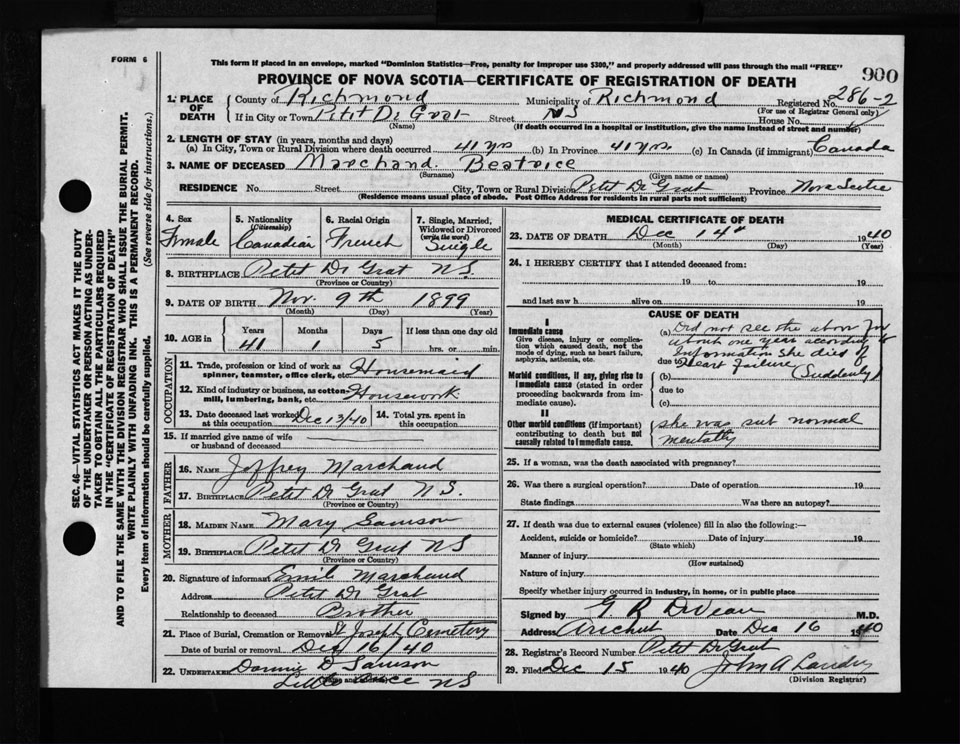 FORM 6
This form if placed in an envelope, marked "Dominion Statistics—Free, penalty for improper use $300," and properly addressed will pass through the mail "FREE"
900
PROVINCE OF NOVA SCOTIA—CERTIFICATE OF REGISTRATION OF DEATH
286-2
1. PLACE OF DEATH County of Richmond Municipality of Richmond Registered No.
(For use of Registrar General only)
If in City or Town Petit De Grat Street NS House No.
(Name) (If death occurred in a hospital or institution, give the name instead of street and number)
2. LENGTH OF STAY (in years, months and days)
(a) In City, Town or Rural Division where death occurred 41 yrs (b) In Province 41 yrs. (c) In Canada (if immigrant) Canada
3. NAME OF DECEASED Marchand. Beatrice
(Surname) (Given name or names)
RESIDENCE No. Street City, Town or Rural Division Petit De Grat Province Nova Scotia
(Residence means usual place of abode. Post Office Address for residents in rural parts not sufficient)
SEC. 46—VITAL STATISTICS ACT MAKES IT THE DUTY
OF THE UNDERTAKER OR PERSON ACTING AS UNDER-
TAKER TO OBTAIN ALL THE PARTICULARS REQUIRED
IN THE "CERTIFICATE OF REGISTRATION OF DEATH"
AND TO FILE THE SAME WITH THE DIVISION REGISTRAR WHO SHALL ISSUE THE BURIAL PERMIT.
WRITE PLAINLY WITH UNFADING INK. THIS IS A PERMANENT RECORD.
Every item of Information should be carefully supplied. (See reverse side for instructions.)
4. Sex Female
5. Nationality (Citizenship) Canadian
6. Racial Origin French
7. Single, Married, Widowed or Divorced (write the word) Single
8. BIRTHPLACE Petit De Grat NS.
(Province or Country)
9. DATE OF BIRTH Nov. 9th 1899
(Month) (Day) (Year)
10. AGE in Years Months Days If less than one day old
41 1 5 hrs. or min.
OCCUPATION
11. Trade, profession or kind of work as spinner, teamster, office clerk, etc. Housemaid
12. Kind of industry or business, as cotton-mill, lumbering, bank, etc. Housework.
13. Date deceased last worked at this occupation Dec 13/40 14. Total yrs. spent in this occupation
15. If married give name of wife or husband of deceased
FATHER
16. NAME Joffrey Marchand
17. BIRTHPLACE Petit De Grat N S.
(Province or Country)
MOTHER
18. MAIDEN NAME Mary Samson
19. BIRTHPLACE Petit De Grat NS
(Province or Country)
20. Signature of informant Emile Marchand
Address Petit De Grat
Relationship to deceased Brother
21. Place of Burial, Cremation or Removal St Joseph Cemetery
Date of burial or removal Dec 16/40
22. UNDERTAKER Dannie D Samson
(Name and address) NS
MEDICAL CERTIFICATE OF DEATH
23. DATE OF DEATH Dec 14th 1940
(Month) (Day) (Year)
24. I HEREBY CERTIFY that I attended deceased from:
19 to 19
and last saw h alive on 19
CAUSE OF DEATH
I
Immediate cause
Give disease, injury or complication which caused death, not the mode of dying, such as heart failure, asphyxia, asthenia, etc.
(a) Did not see the above for
about one year according to
Information she died of
due to Heart failure
(b) (Suddenly)
Morbid conditions, if any, giving rise to immediate cause (stated in order proceeding backwards from immediate cause).
due to
(c)
II
Other morbid conditions (if important) contributing to death but not causally related to immediate cause.
she was sub normal
mentally
25. If a woman, was the death associated with pregnancy?
26. Was there a surgical operation? Date of operation 19
State findings Was there an autopsy?
27. If death was due to external causes (violence) fill in also the following:—
Accident, suicide or homicide? Date of injury 19
(State which)
Manner of injury
(How sustained)
Nature of injury
Specify whether injury occurred in industry, in home, or in public place
Signed by G R DeVeau M.D.
Address Arichat Date Dec 16 1940
28. Registrar's Record Number Petit De Grat
29. Filed Dec 15 1940 John A Landry
(Division Registrar)